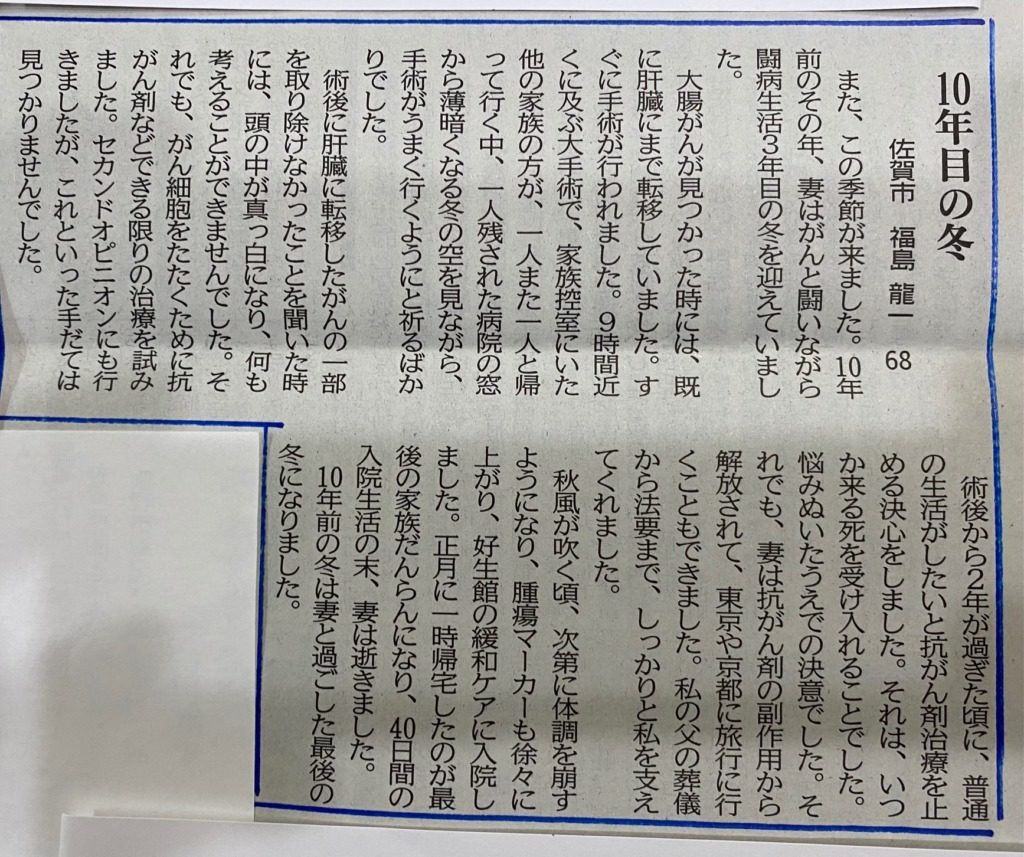 10年目の冬
佐賀市 福島 龍一 68
また、この季節が来ました。10年
前のその年、妻はがんと闘いながら
闘病生活3年目の冬を迎えていまし
た。
大腸がんが見つかった時には、既
に肝臓にまで転移していました。す
ぐに手術が行われました。9時間近
くに及ぶ大手術で、家族控室にいた
他の家族の方が、一人また一人と帰
って行く中、一人残された病院の窓
から薄暗くなる冬の空を見ながら、
手術がうまく行くようにと祈るばか
りでした。
術後に肝臓に転移したがんの一部
を取り除けなかったことを聞いた時
には、頭の中が真っ白になり、何も
考えることができませんでした。そ
れでも、がん細胞をたたくために抗
がん剤などできる限りの治療を試み
ました。セカンドオピニオンにも行
きましたが、これといった手だては
見つかりませんでした。
術後から2年が過ぎた頃に、普通
の生活がしたいと抗がん剤治療を止
める決心をしました。それは、いつ
か来る死を受け入れることでした。
悩みぬいたうえでの決意でした。そ
れでも、妻は抗がん剤の副作用から
解放されて、東京や京都に旅行に行
くこともできました。私の父の葬儀
から法要まで、しっかりと私を支え
てくれました。
秋風が吹く頃、次第に体調を崩す
ようになり、腫瘍マーカーも徐々に
上がり、好生館の緩和ケアに入院し
ました。正月に一時帰宅したのが最
後の家族だんらんになり、40日間の
入院生活の末、妻は逝きました。
10年前の冬は妻と過ごした最後の
冬になりました。